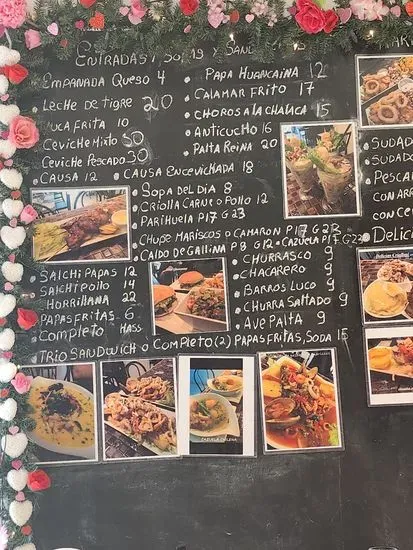 ENTRADAS, SOPAS Y SAND
EMPANADA QUESO 4
LECHE DE TIGRE 20
YUCA FRITA 10
CEVICHE MIXTO 30
CEVICHE PESCADO 30
CAUSA 12
CAUSA ENCEVICHADA 18
PAPA HUANCAINA 12
CALAMAR FRITO 17
CHOROS A LA CHALACA 15
ANTICUCHO 16
PALTA REINA 20
SOPA DEL DIA 8
CRIOLLA CARNE O POLLO 12
PARIHUELA P17 G23
CHUPE MARISCOS O CAMARON P17 G23
CALDO DE GALLINA P8 G12
CAZUELA P17 G23
SALCHIPAPAS 12
SALCHIPOLLO 14
HORRILLANA 22
PAPAS FRITAS 6
COMPLETO
CHURRASCO 9
CHACARERO 9
BARROS LUCO 9
CHURRA SALTADO 9
AVE PALTA 9
TRIO SANDWICH O COMPLETO (2) PAPAS FRITAS, SODA 15
MAR
SUDAD
SUDAD
PESCA
CON AR
CON CE
DELIC
CAZUELA CHILENA